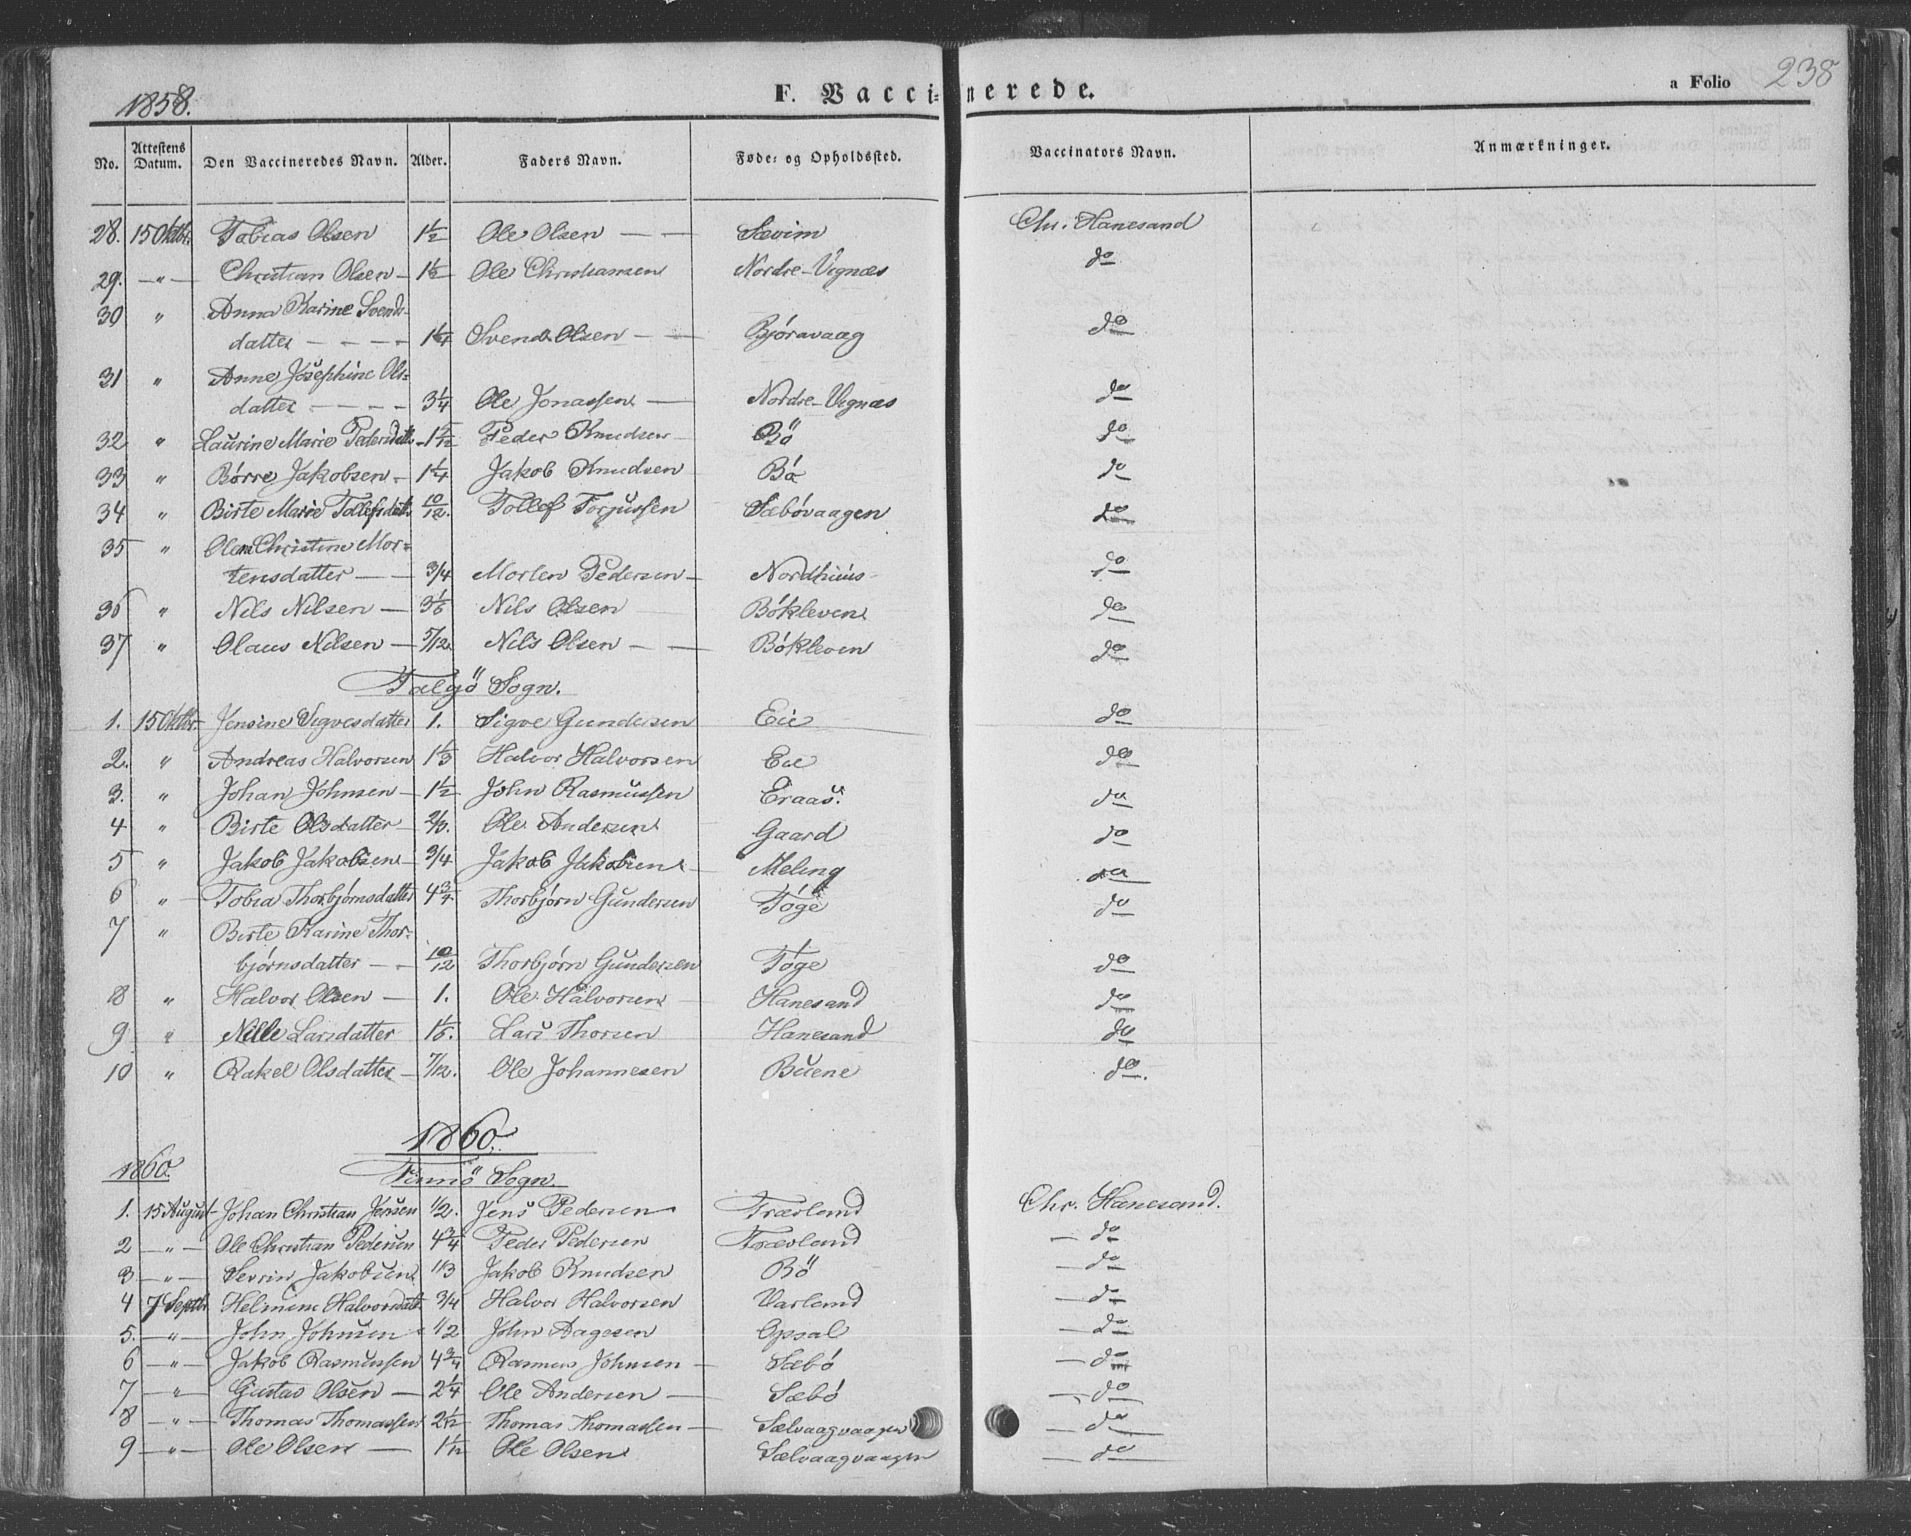 1858.
F. Vaccinerede.
a Folio 238
No. Attestens Datum. Den Vaccineredes Navn. Alder. Faders Navn. Føde- og Opholdssted. Vaccinators Navn. Anmærkninger.
28. 15 Oktbr. Tobias Olsen 1 1/2 Ole Olsen — — Sævim Chr. Hanesand
29. —"— Christian Olsen — Ole Christiansen Nordre-Vignæs do
30 " Anna Karine Svends-
datter — — — — 1 1/4 Svend Olsen — — Bjøravaag do
31 " Anne Josephine Ols-
datter — — — — 3 1/4 Ole Jonassen — Nordre-Vignæs do
32 " Laurine Marie Pedersdatt. Peder Knudsen Bö do
33 " Børre Jakobsen — 1 1/4 Jakob Knudsen Bö do
34 " Birte Marie Tollefsdatt. 10/12. Tollef Torjussen Sæbövaagen do
35 " Olena Christine Mor-
tensdatter — — 3/4 Morten Pedersen — Nordhuus do
36 " Nils Nilsen — 3 1/6 Nils Olsen Bökleven do
37 " Olaus Nilsen — 5/12 Nils Olsen — — Bökleven do
Talgö Sogn.
1. 15 Oktbr. Jensine Sigvesdatter 1. Sigve Gundersen Eie do
2. " Andreas Halvorsen 1 1/3 Halvor Halvorsen Eie do
3. " Johan Johnsen — 1 1/2 John Rasmussen Eraas. do
4 " Birte Olsdatter — 2/3. Ole Andersen Gaard do
5 " Jakob Jakobsen — 3/4 Jakob Jakobsen — Meling do
6 " Tobia Thorbjørnsdatter 4 3/4 Thorbjørn Gundersen Töge do
7 " Birte Karine Thor-
bjørnsdatter — — 10/12 Thorbjørn Gundersen Töge do
8 " Halvor Olsen — 1. Ole Halvorsen Hanesand do
9 " Nille Larsdatter Lars Thorsen Hanesand do
10 " Rakel Olsdatter — 7/12. Ole Johannesen Buene do.
1860.
1860. Finnö Sogn.
1. 15 August Johan Christian Jensen 1/2. Jens Pedersen Trævland Chr. Hanesand.
2 —"— Ole Christian Pedersen 4 3/4 Peder Pedersen Trævland — do
3 —"— Sevrin Jakobsen 1/3 Jakob Knudsen Bö — do
4 7 Septbr. Helmine Halvorsdatt. 3/4 Halvor Halvorsen Varland — do
5. —"— John Johnsen 1/2 John Aagesen Opsal — do
6 —"— Jakob Rasmussen 4 3/4 Rasmus Johnsen — Sæbö — do
7 —"— Gustav Olsen — 2 1/4 Ole Andersen — Sæbö — do
8 —"— Thomas Thomassen 2 1/12 Thomas Thomassen — Sælvaagvaagen — do
9 —"— Ole Olsen — 1 1/12 Ole Olsen Sælvaagvaagen — do